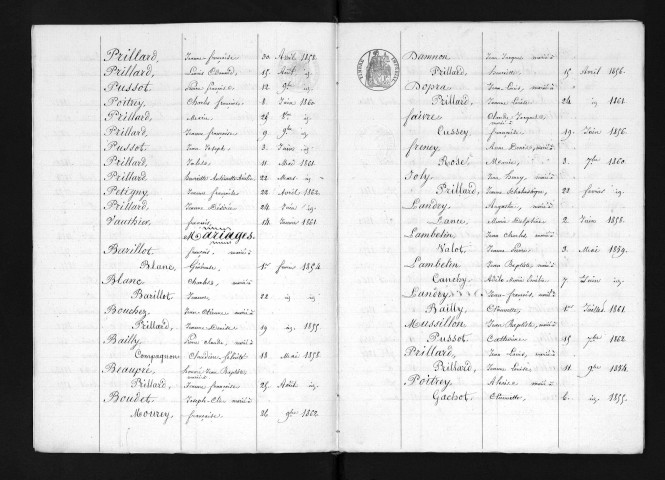 Prillard, Jeanne françoise 30 Avril 1858.
Prillard, Louis Édouard, 15 Août ig
Pussot. 12 9bre ig.
Poitrey, Charles françois 8 Juin 1860
Prillard, Marie 26 ig.
Prillard, Jeanne françoise 9 9bre ig.
Pussot Jean Joseph 3. Juin ig.
Prillard, 11 Mai 1861.
Prillard, 22 Mars ig
Petigny, Jeanne françoise 22 Avril 1862.
Prillard, Jeanne 24 Juin ig.
Vauthier, françois, 14 Janvier 1861.
Mariages.
Barillot françois, marié à
Blanc, Générade, 1er février 1854
Blanc Charles, marié à
Barillot Jeanne, 22 ig ig.
Bouchez Jean Étienne marié à
Prillard, Jeanne Denise 29 ig. 1855
Bailly, Pierre claude, marié à
Compagnon Claudine 18 Mai 1858.
Beaupré, Jean Baptiste, marié à
Prillard, Jeanne françoise 25 Août ig.
Boudet. Joseph marié à
Mourey, françoise 26 9bre 1862.
Damnon Jean Jacques marié à
Prillard, 15 Avril 1856.
Dopra Jean Louis, marié à
Prillard, Jeanne Louise 24 ig 1861.
faivre Claude Jacques marié à
Cussey françoise 19. Juin 1856.
freney marié à
Rose Marie 3. 7bre 1860.
Joly, Jean marié à
Prillard, Jeanne Scholastique, 22 février ig.
Landry, Auguste, marié à
Lance, Marie Delphine 2 Juin 1858.
Lambelin Jean Charles marié à
Valot Jeanne 3. Mai 1859.
Lambelin, Jean Baptiste marié à
Canchy Adèle Marie 7. Juin ig.
Landry Jean françois, marié à
Bailly Claudette, 1er Juillet 1861.
Mussillon Jean Baptiste, marié à
Pussot Catherine 15 7bre 1862
Prillard, Jean Louis, marié à
Prillard, Jeanne Louise 11 9bre 1854.
Poitrey, marié à
Gachot, Claudette, 6. ig 1855.